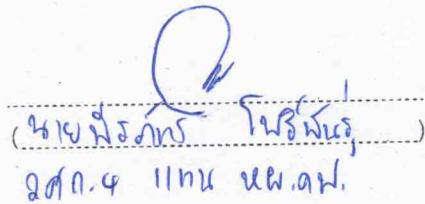 (นายพีรภัทร โพธิ์พันธุ์)
วศก.4 แทน หผ.คฟ.